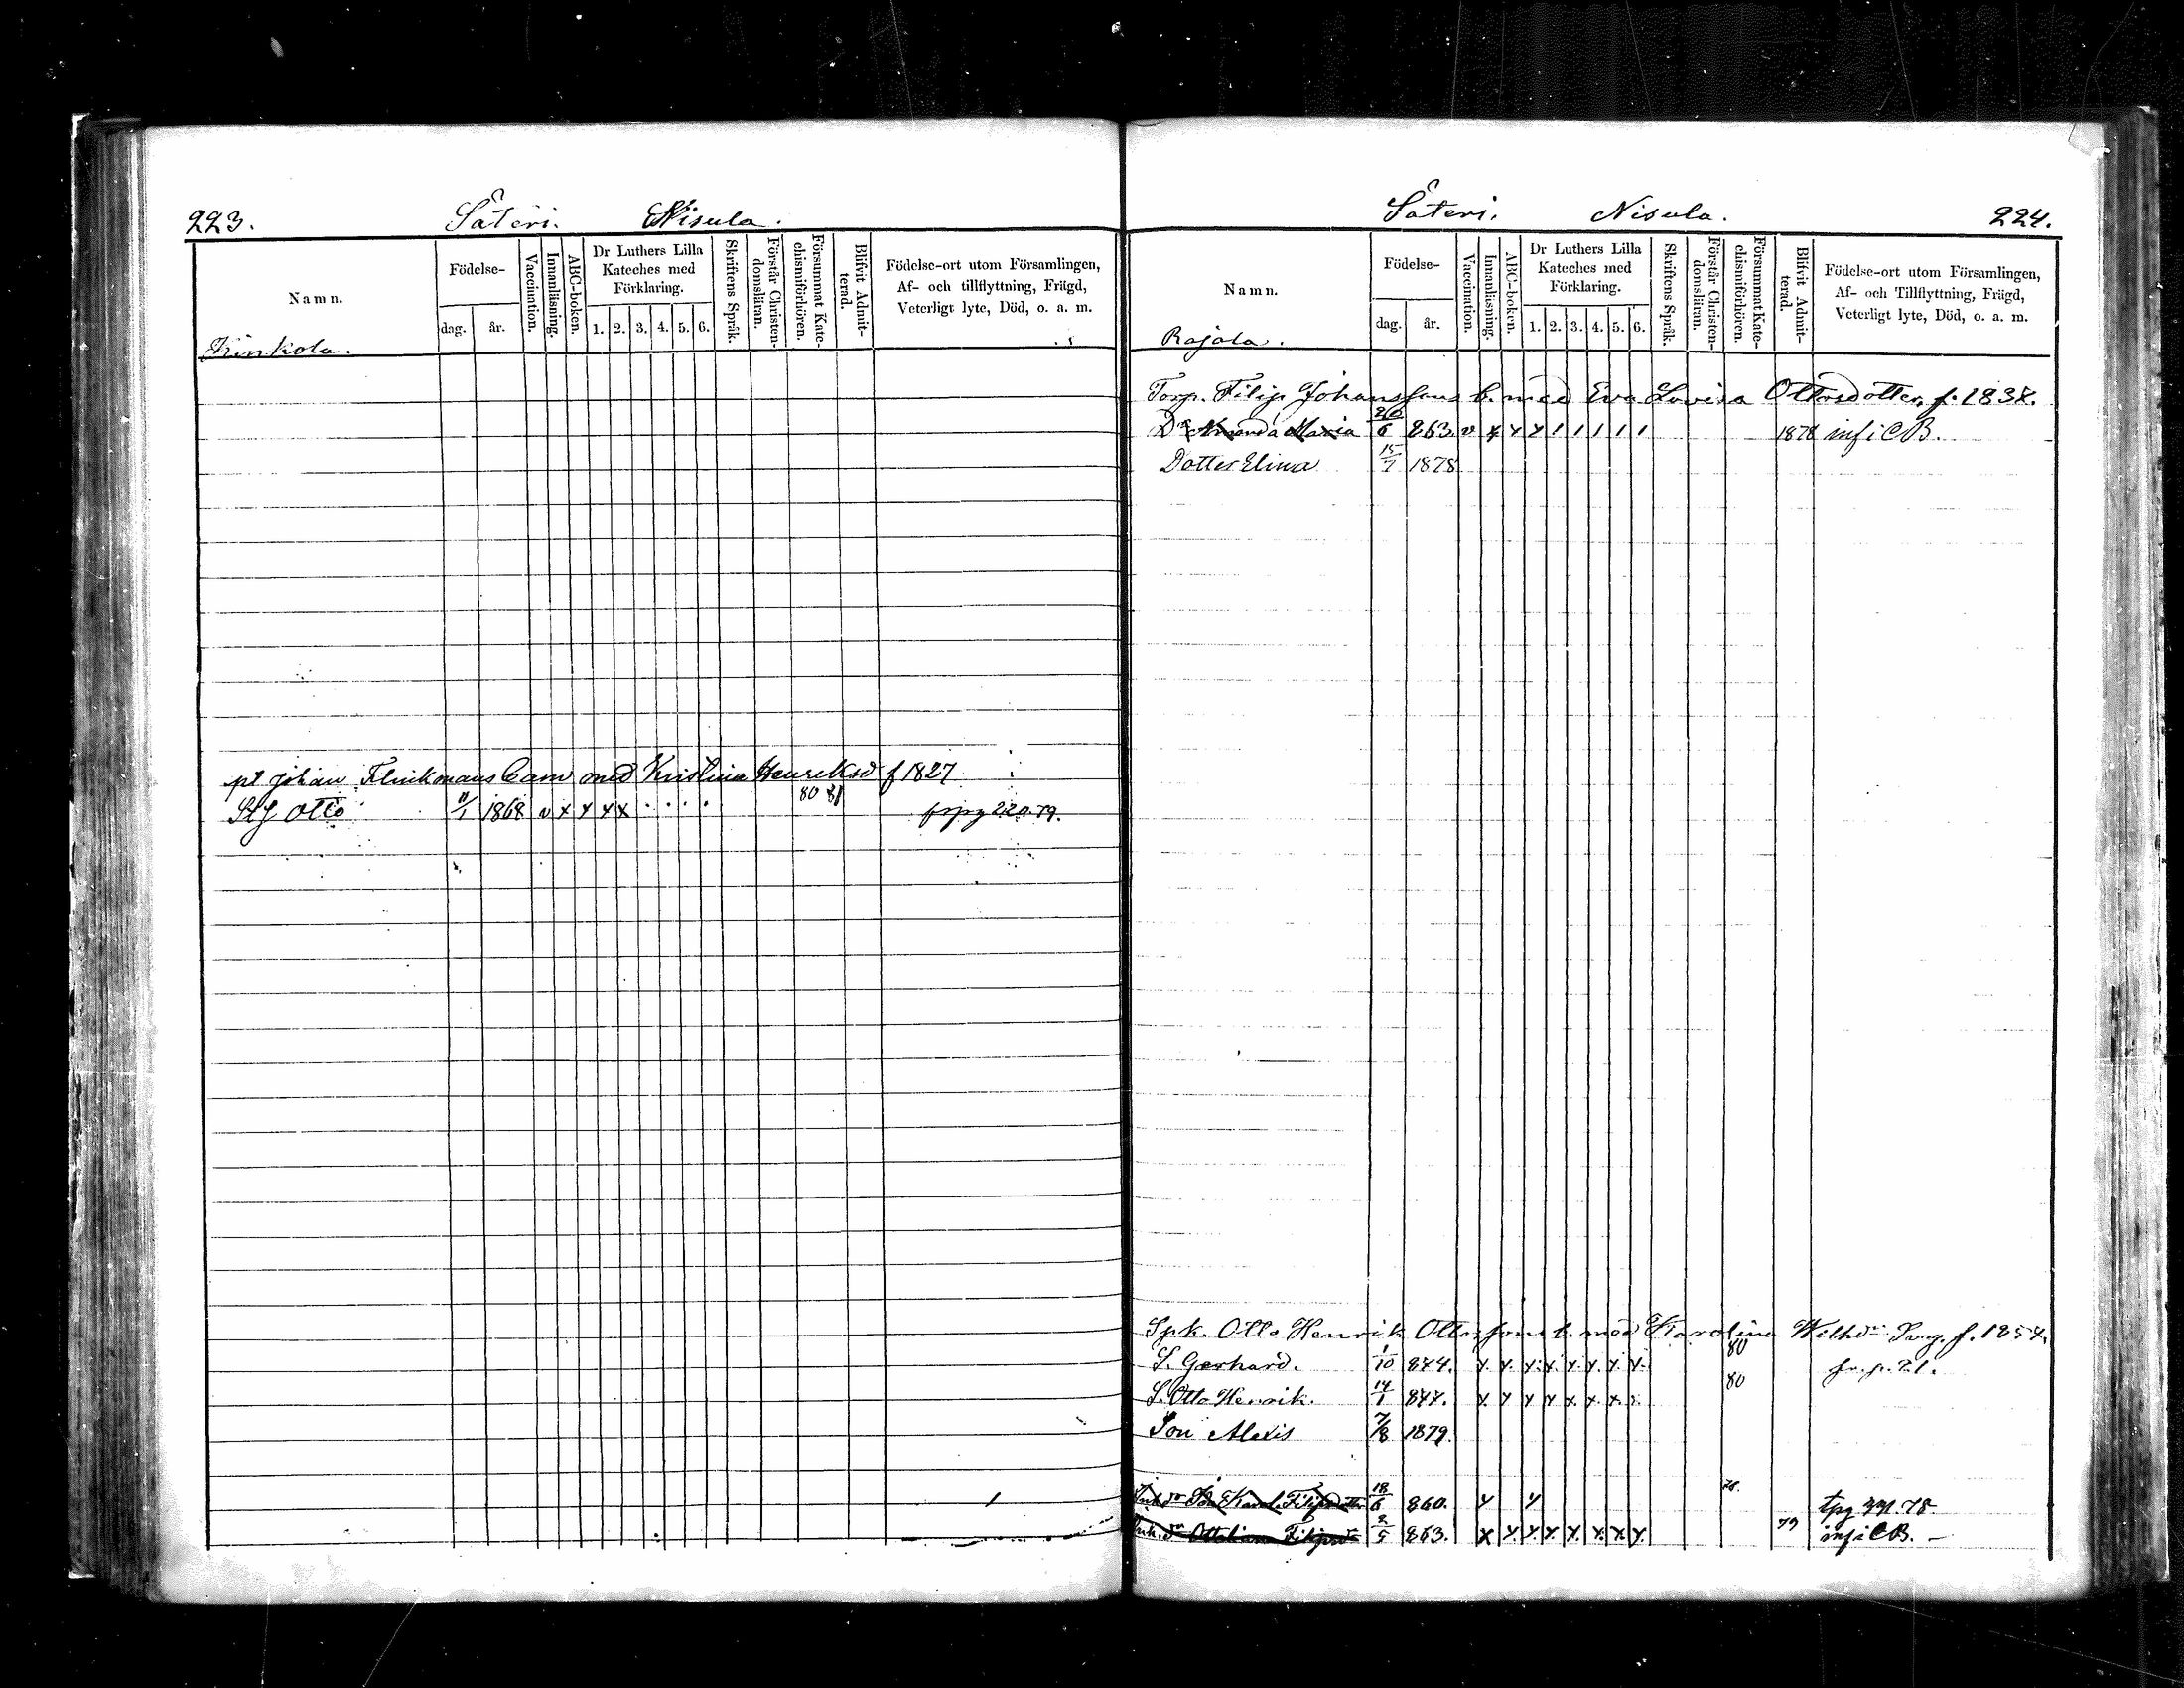 223. Säteri. Nisula.
Namn. Födelse- dag. år. Vaccination. Innanläsning. ABC-boken. Dr Luthers Lilla Kateches med Förklaring. 1. 2. 3. 4. 5. 6. Skriftens Språk. Förstår Christen-domsläran. Försummat Kate-chismiförhören. Blifvit Admit-terad. Födelse-ort utom Församlingen, Af- och tillflyttning, Frägd, Veterligt lyte, Död, o. a. m.
Kinkola.
pt Johan Flinkmans barn med Kristina Henriksd f 1827
Otto 11/1 1868 v x x x x 80 81 frpg 220 79.
Säteri. Nisula. 224.
Namn. Födelse- dag. år. Vaccination. Innanläsning. ABC-boken. Dr Luthers Lilla Kateches med Förklaring. 1. 2. 3. 4. 5. 6. Skriftens Språk. Förstår Christen-domsläran. Försummat Kate-chismiförhören. Blifvit Admit-terad. Födelse-ort utom Församlingen, Af- och Tillflyttning, Frägd, Veterligt lyte, Död, o. a. m.
Rajala.
Torp. Filip Johanssons b. med Eva Lovisa Ottosdotter, f. 1838.
Dr Amanda Maria 26/6 863. v x x x 1 1 1 1 1 1878 inf i CB.
Dotter Elina 15/7 1878
Spk. Otto Henrik Ottossons b. med Karolina Welhdr f. 1854.
S. Gerhard. 1/10 874. x. x. x. x. x. x. x. x. 80 fr. p.
S. Otto Henrik. 14/1 877. x. x x x x. x. x. x. 80
Son Alexis 7/8 1879.
Ida Karol. Filipsdotter 18/6 860. x x 78. tpg 78
Filipsdr 2/5 863. x x. x. x. x. x. x. x. 79 inf i CB. -